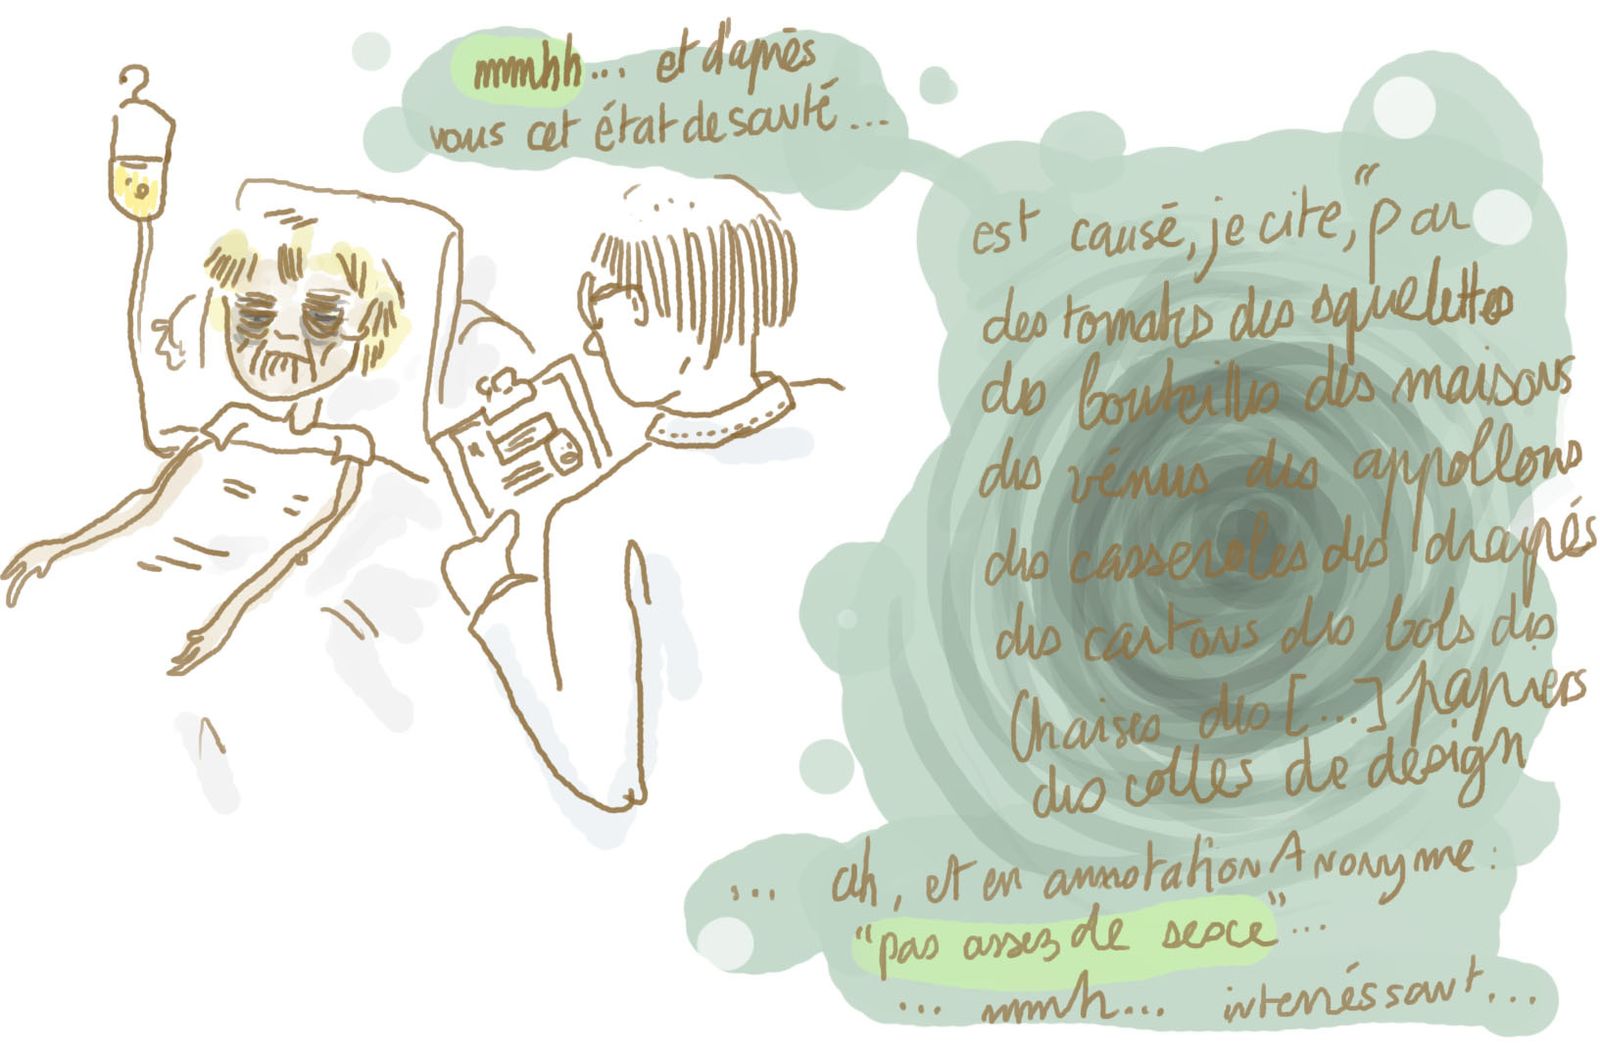 mmhh... et d'après
vous cet état de santé...
est causé, je cite, "par
des tomates des squelettes
des bouteilles des maisons
des vénus des appollons
des casseroles des drapés
des cartons des bols des
chaises des [...] papiers
des colles de design
... ah, et en annotation Anonyme :
"pas assez de sexe"...
... mmh... interréssant...